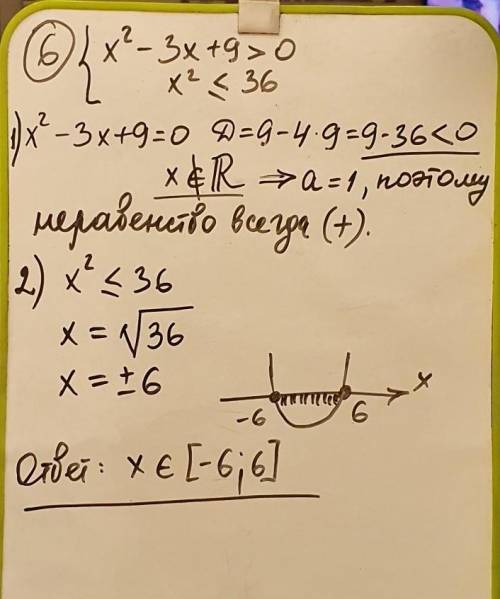 6 { x² - 3x + 9 > 0
x² ≤ 36
1) x² - 3x + 9 = 0 Д = 9 - 4·9 = 9 - 36 < 0
x ∉ ℝ ⇒ a = 1, поэтому
неравенство всегда (+).
2) x² ≤ 36
x = √36
x = ±6
-6 6 x
Ответ: x ∈ [-6; 6]